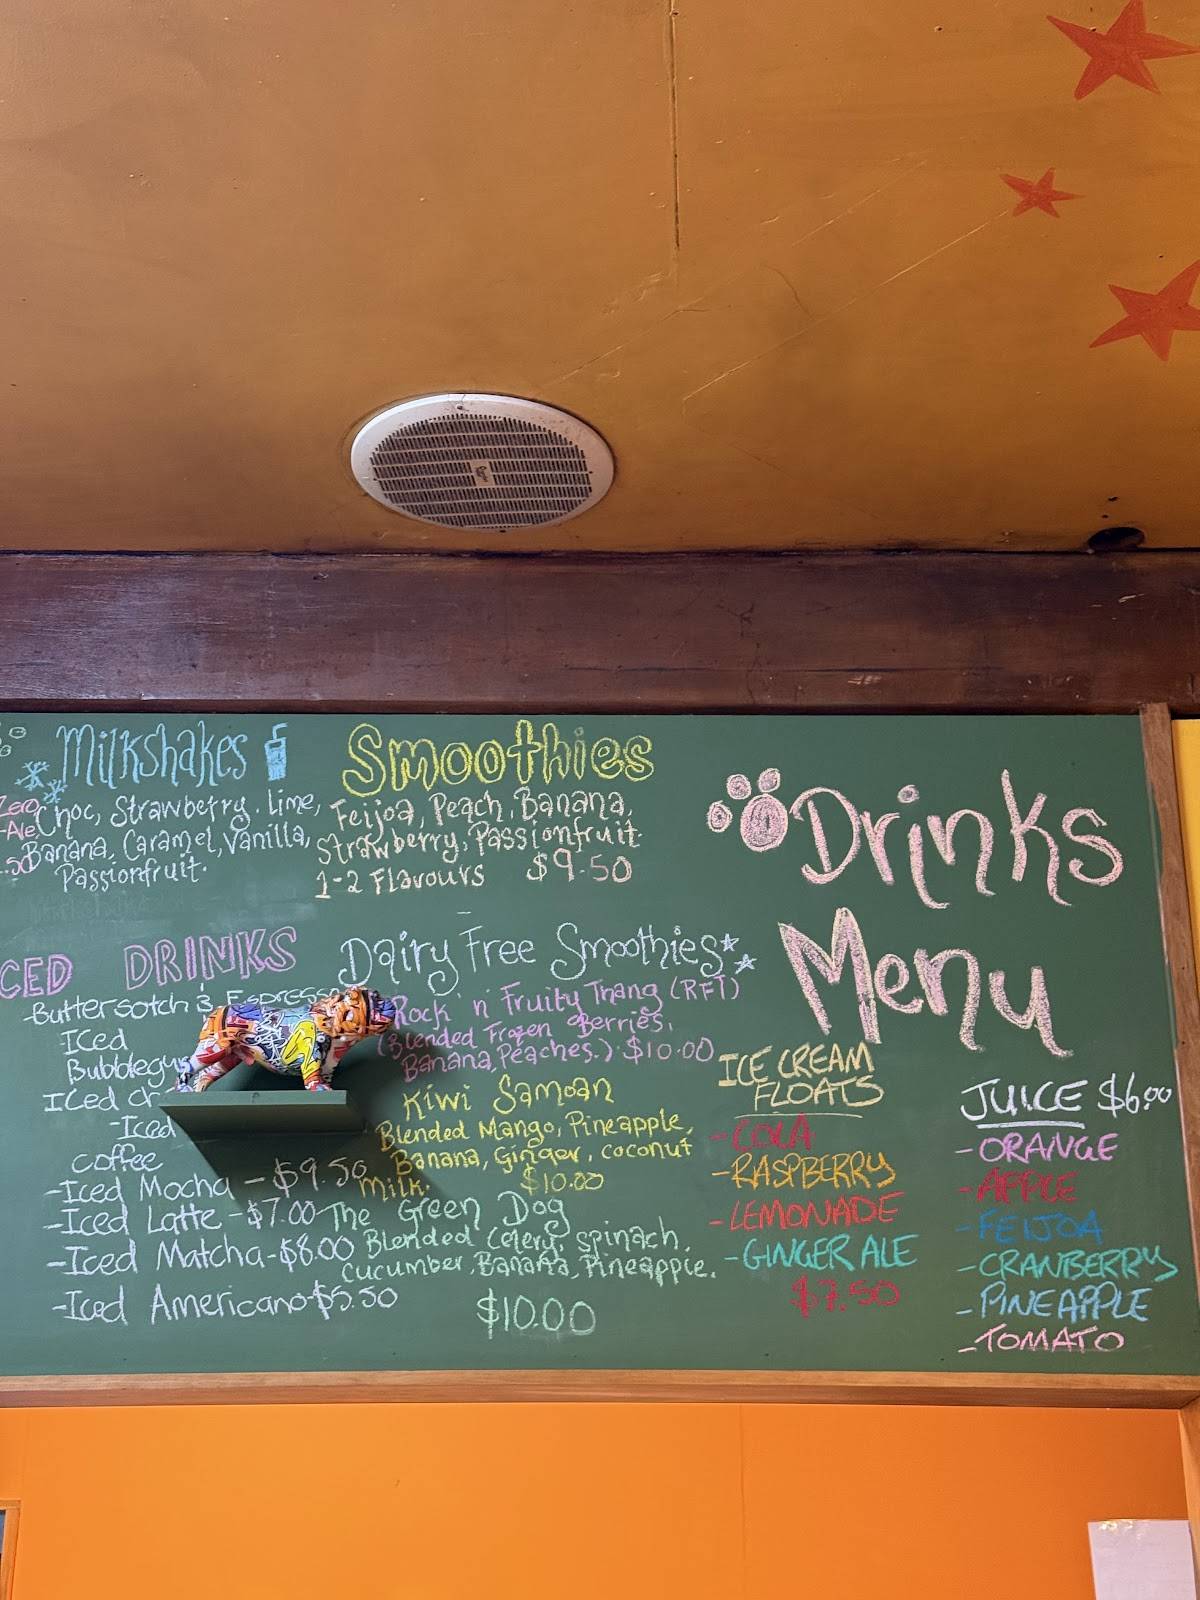 Milkshakes
Choc, Strawberry, Lime,
Banana, Caramel, Vanilla,
Passionfruit.
Zero
-Ale
.50
Smoothies
Feijoa, Peach, Banana,
Strawberry, Passionfruit.
1-2 Flavours $9.50
Drinks
Menu
CED DRINKS
-Buttersotch & Espresso
Iced
Bubblegu
Iced
-Iced
coffee
-Iced Mocha - $9.50
-Iced Latte - $7.00
-Iced Matcha - $8.00
-Iced Americano - $5.50
Dairy Free Smoothies
Rock 'n' Fruity Thang (RFT)
(Blended Frozen Berries,
Banana, Peaches.) $10.00
Kiwi Samoan
Blended Mango, Pineapple,
Banana, Ginger, coconut
Milk. $10.00
The Green Dog
Blended Celery, spinach,
cucumber, Banana, Pineapple.
$10.00
ICE CREAM
FLOATS
- COLA
- RASPBERRY
- LEMONADE
- GINGER ALE
$7.50
JUICE $6.00
- ORANGE
- APPLE
- FEIJOA
- CRANBERRY
- PINEAPPLE
- TOMATO